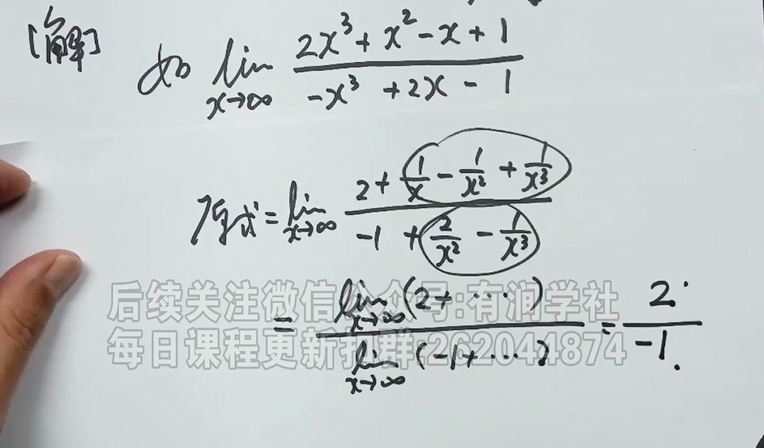 [解]
如 lim x→∞ (2x³ + x² - x + 1) / (-x³ + 2x - 1)
原式 = lim x→∞ (2 + 1/x - 1/x² + 1/x³) / (-1 + 2/x² - 1/x³)
= lim x→∞ (2 + ⋯) / lim x→∞ (-1 + ⋯) = 2 / -1
后续关注微信公众号:有润学社
每日课程更新扣群:262041874